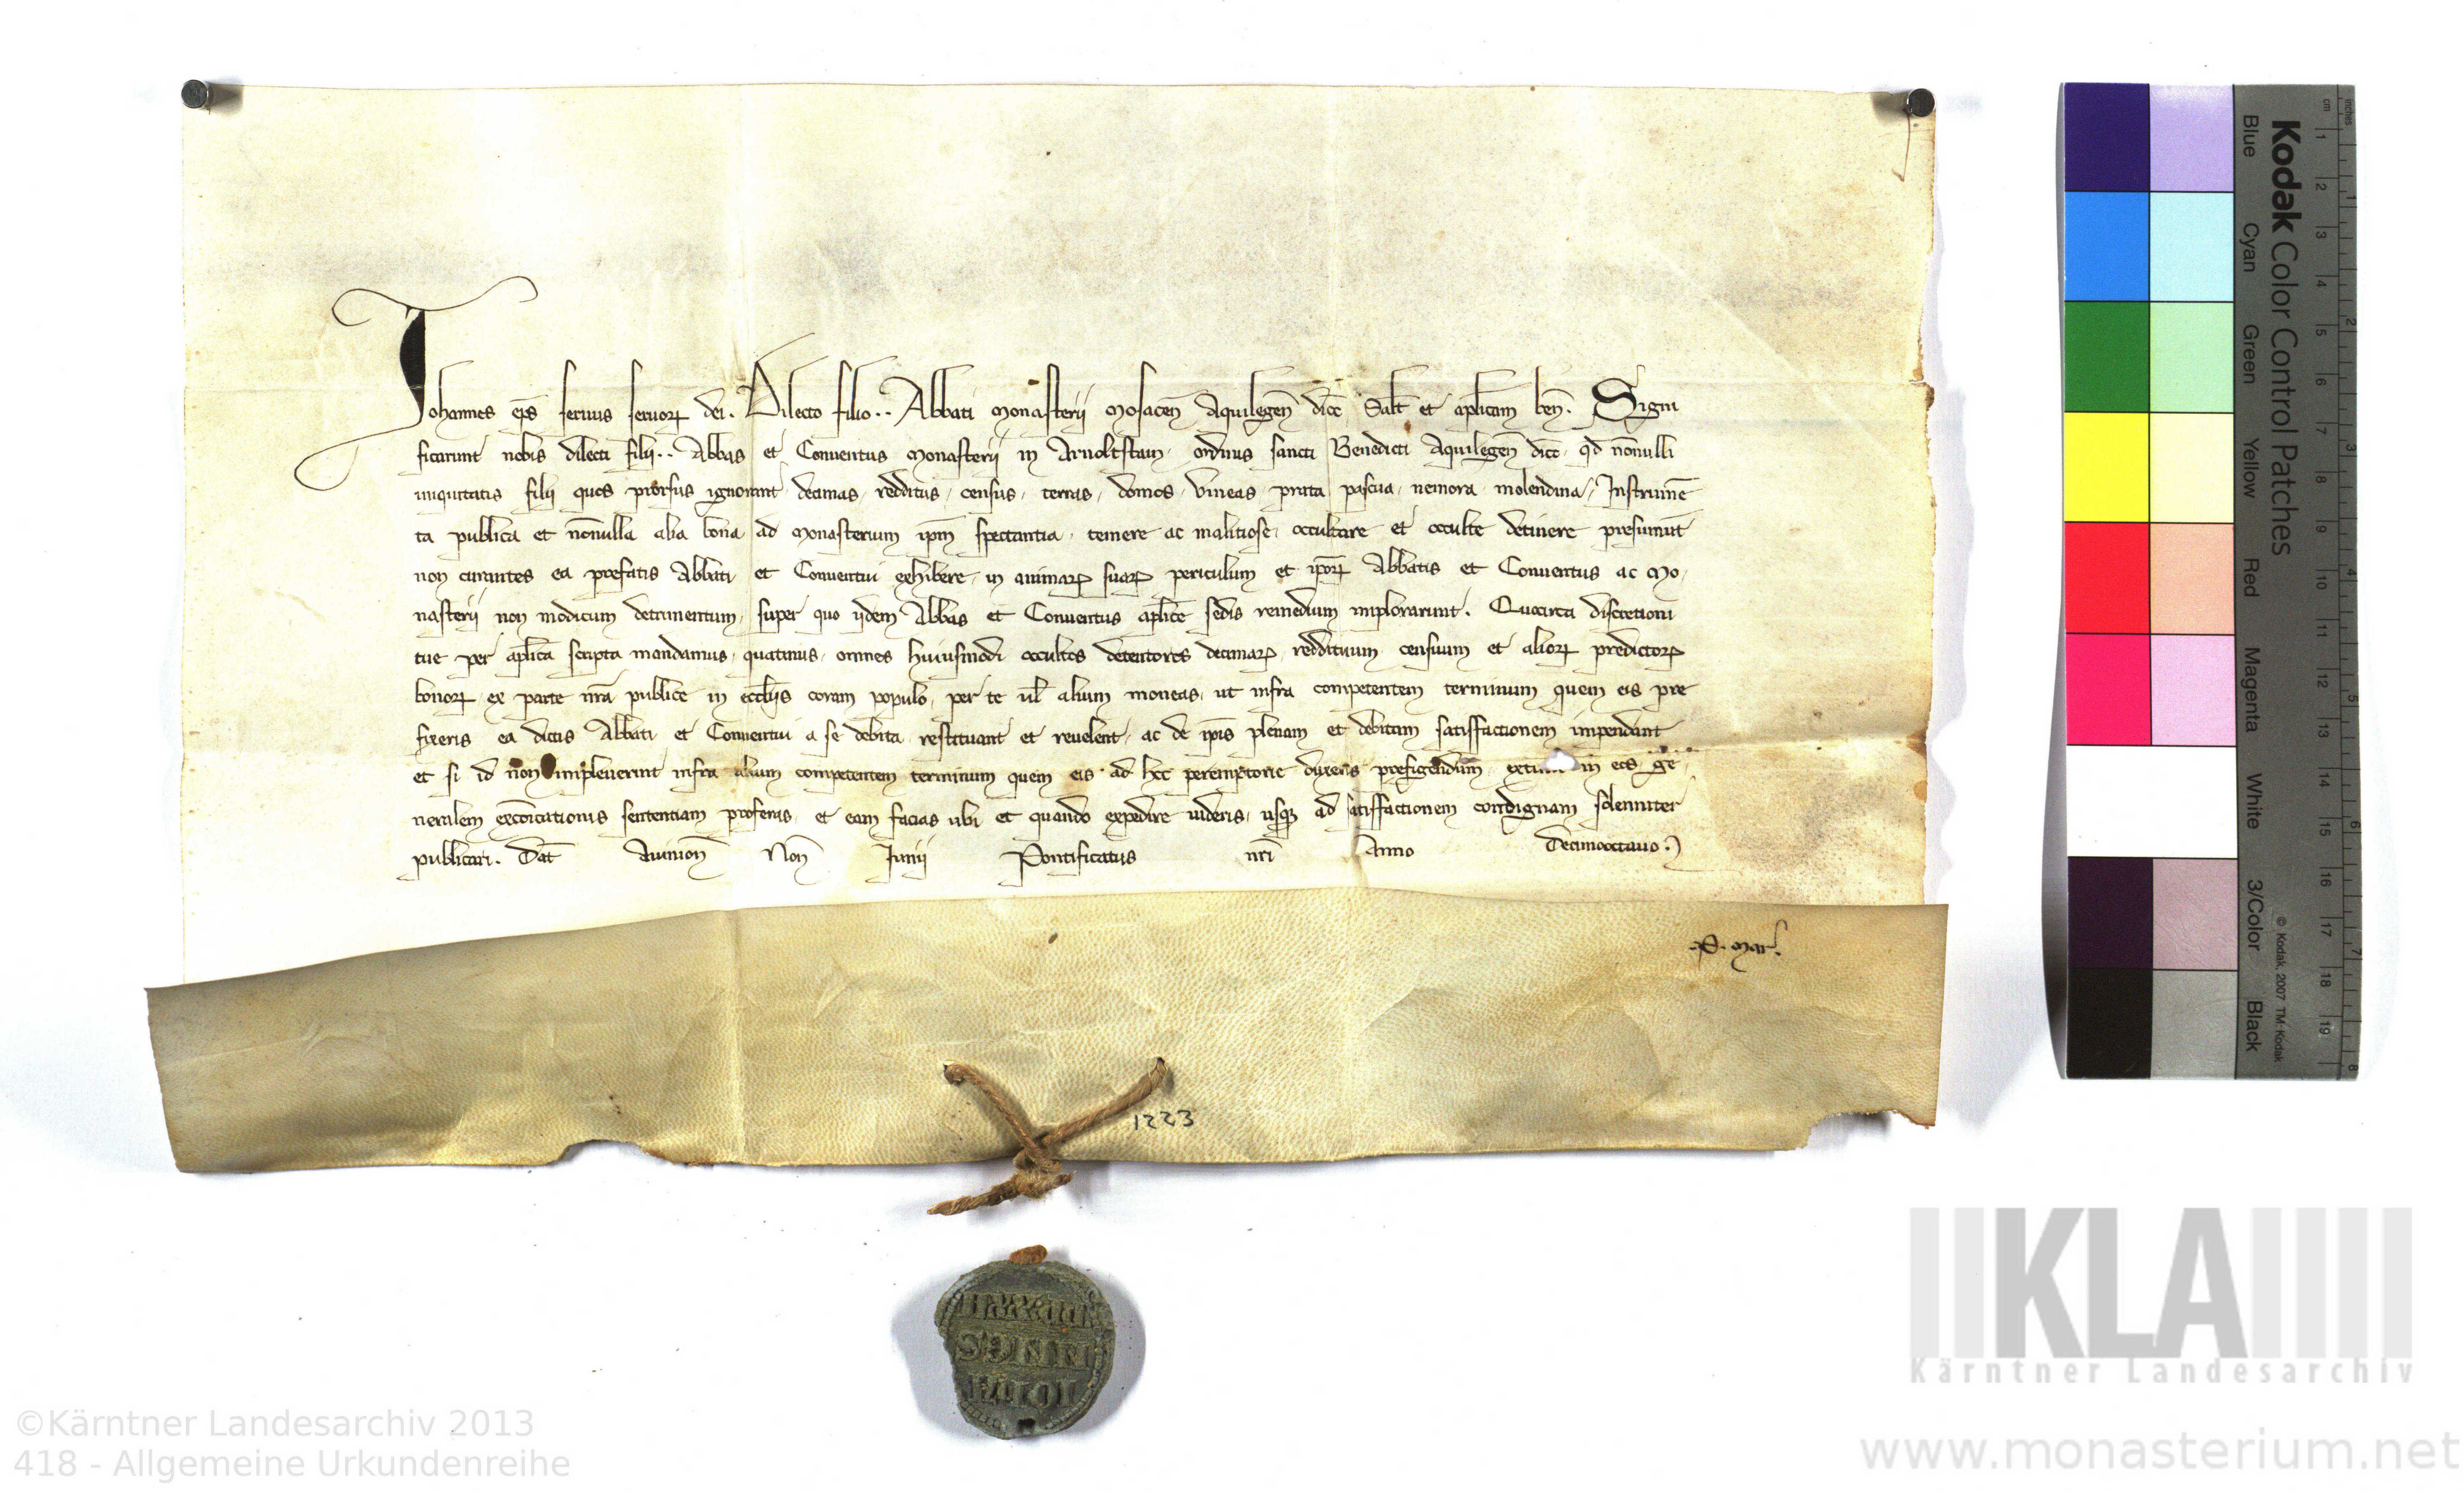 Johannes ep̄s seruus seruoꝝ dei. Dilecto filio . . Abbati Monasterij Mosacen̄ Aquilegen̄ dioc̄ Salt̄ et apl̄icam ben̄. Signi
ficarunt nobis dilecti filij . . Abbas et Conuentus Monasterij in Arnoltstain, ordinis sancti Benedicti Aquilegen̄ dioc̄, qd̄ nōnulli
iniquitatis filij quos prorsus ignorant, decimas, redditus, census, terras, domos, vineas, prata, pascua, nemora, molendina, Instrumē
ta publica et nōnulla alia bona, ad Monasterium ipm̄ spectantia, temere ac malitiose, occultare et occulte detinere presumūt
non curantes ea prefatis Abbati et Conuentui exhibere, in animaꝝ suaꝝ periculum et ipoꝝ Abbatis et Conuentus ac Mo,
nasterij non modicum detrimentum, super quo ijdem Abbas et Conuentus apl̄ice sedis remedium implorarunt. Quocirca discretioni
tue per apl̄ica scripta mandamus, quatinus, omnes huiusmodi occultos detentores decimaꝝ, reddituum, censuum et alioꝝ predictoꝝ
bonoꝝ, ex parte nr̄a publice in eccl̄ijs coram populo, per te ul̄ alium moneas, ut infra competentem terminum quem eis pre
fixeris ea dictis Abbati et Conuentui a se debita, restituant et reuelent, ac de ip̄is plenam et debitam satisfactionem impendant
et si id non impleuerint infra alium competentem terminum quem eis ad hoc peremptorie duxeris prefigendum, in eos ge,
neralem excōicationis sententiam proferas, et eam facias ubi et quando expedire uideris, usqꝫ ad satisfactionem condignam solenniter
publicari. Dat̄ Auinion̄ Non̄ Junij Pontificatus nr̄i Anno Decimooctauo.
P. Mar.
1223
Kodak Color Control Patches
Blue Cyan Green Yellow Red Magenta White 3/Color Black
© Kodak, 2007 TM: Kodak
cm 1 2 3 4 5 6 7 8 9 10 11 12 13 14 15 16 17 18 19
inches 1 2 3 4 5 6 7 8
KLA
Kärntner Landesarchiv
©Kärntner Landesarchiv 2013
418 - Allgemeine Urkundenreihe
www.monasterium.net